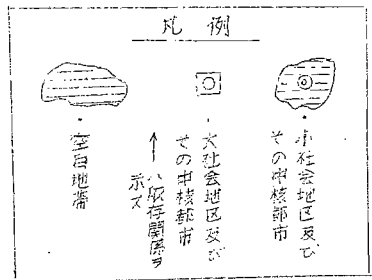 凡例
小社会地区及び
その中核都市
大社会地区及び
その中核都市
↑ハ依存関係ヲ
示ス
空白地帯